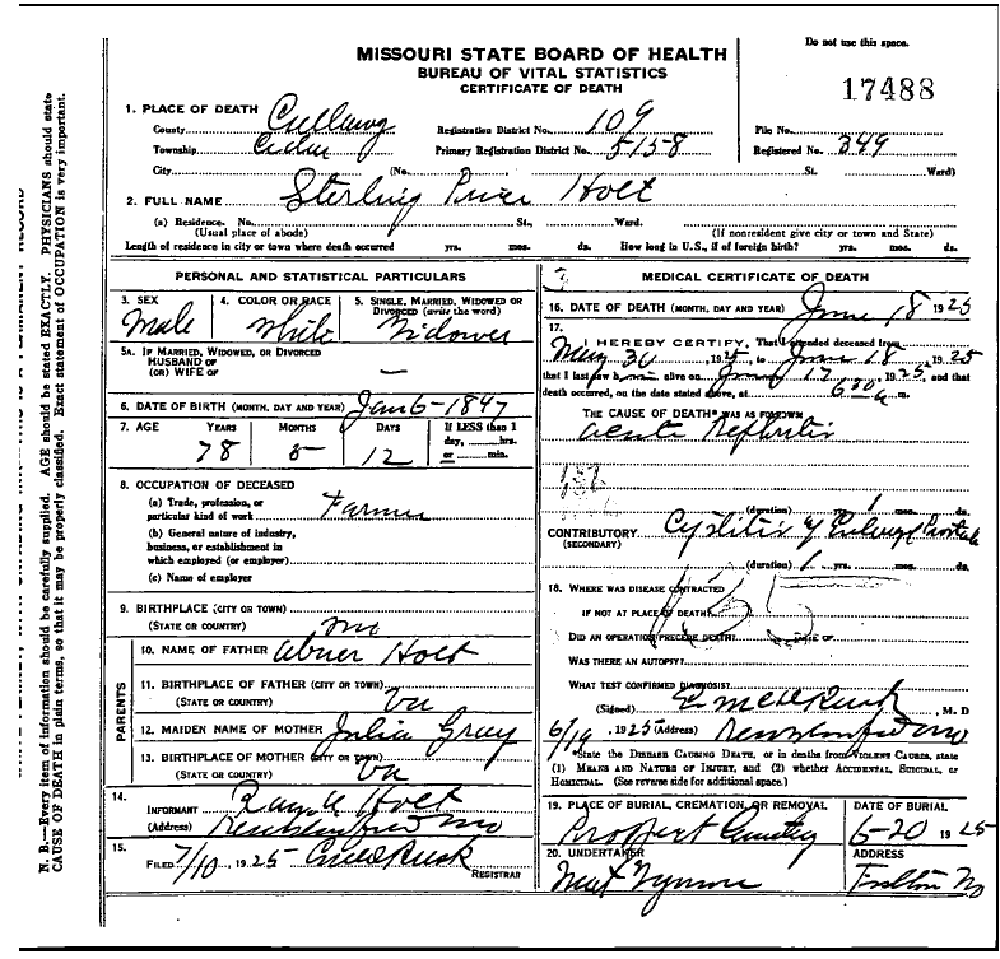 Do not use this space.
MISSOURI STATE BOARD OF HEALTH
BUREAU OF VITAL STATISTICS
CERTIFICATE OF DEATH
17488
1. PLACE OF DEATH
County Callaway Registration District No. 109 File No.
Township Cedar Primary Registration District No. 5158 Registered No. 349
City (No. St. Ward)
2. FULL NAME Sterling Price Holt
(a) Residence. No. St., Ward.
(Usual place of abode) (If nonresident give city or town and State)
Length of residence in city or town where death occurred yrs. mos. ds. How long in U.S., if of foreign birth? yrs. mos. ds.
PERSONAL AND STATISTICAL PARTICULARS
3. SEX 4. COLOR OR RACE 5. SINGLE, MARRIED, WIDOWED OR
DIVORCED (write the word)
Male White Widower
5A. IF MARRIED, WIDOWED, OR DIVORCED
HUSBAND OF
(OR) WIFE OF —
6. DATE OF BIRTH (MONTH, DAY AND YEAR) Jan 6 - 1847
7. AGE YEARS MONTHS DAYS If LESS than 1
day, hrs.
or min.
78 5 12
8. OCCUPATION OF DECEASED
(a) Trade, profession, or
particular kind of work Farmer
(b) General nature of industry,
business, or establishment in
which employed (or employer)
(c) Name of employer
9. BIRTHPLACE (CITY OR TOWN)
(STATE OR COUNTRY) Mo
PARENTS
10. NAME OF FATHER Abner Holt
11. BIRTHPLACE OF FATHER (CITY OR TOWN)
(STATE OR COUNTRY) Va
12. MAIDEN NAME OF MOTHER Julia Gray
13. BIRTHPLACE OF MOTHER (CITY OR TOWN)
(STATE OR COUNTRY) Va
14.
INFORMANT Holt
(Address) Mo
15.
FILED 7/10, 1925 Rusk
REGISTRAR
MEDICAL CERTIFICATE OF DEATH
16. DATE OF DEATH (MONTH, DAY AND YEAR) June 18 1925
17.
I HEREBY CERTIFY, That I attended deceased from
May 30, 1925, to June 18, 1925
that I last saw h alive on June 17, 1925, and that
death occurred, on the date stated above, at 6 20 a m.
THE CAUSE OF DEATH* WAS AS FOLLOWS:
Acute Nephritis
(duration) yrs. 1 mos. ds.
CONTRIBUTORY Cystitis & Enlarged Prostate
(SECONDARY)
(duration) 1 yrs. mos. ds.
18. WHERE WAS DISEASE CONTRACTED
IF NOT AT PLACE OF DEATH?
DID AN OPERATION PRECEDE DEATH? DATE OF
WAS THERE AN AUTOPSY?
WHAT TEST CONFIRMED DIAGNOSIS?
(Signed) Rusk, M. D
6/19, 1925 (Address) Mo
*State the DISEASE CAUSING DEATH, or in deaths from VIOLENT CAUSES, state
(1) MEANS AND NATURE OF INJURY, and (2) whether ACCIDENTAL, SUICIDAL, or
HOMICIDAL. (See reverse side for additional space.)
19. PLACE OF BURIAL, CREMATION, OR REMOVAL DATE OF BURIAL
6-20 1925
20. UNDERTAKER ADDRESS
Fulton Mo
N. B.—Every item of information should be carefully supplied. AGE should be stated EXACTLY. PHYSICIANS should state
CAUSE OF DEATH in plain terms, so that it may be properly classified. Exact statement of OCCUPATION is very important.